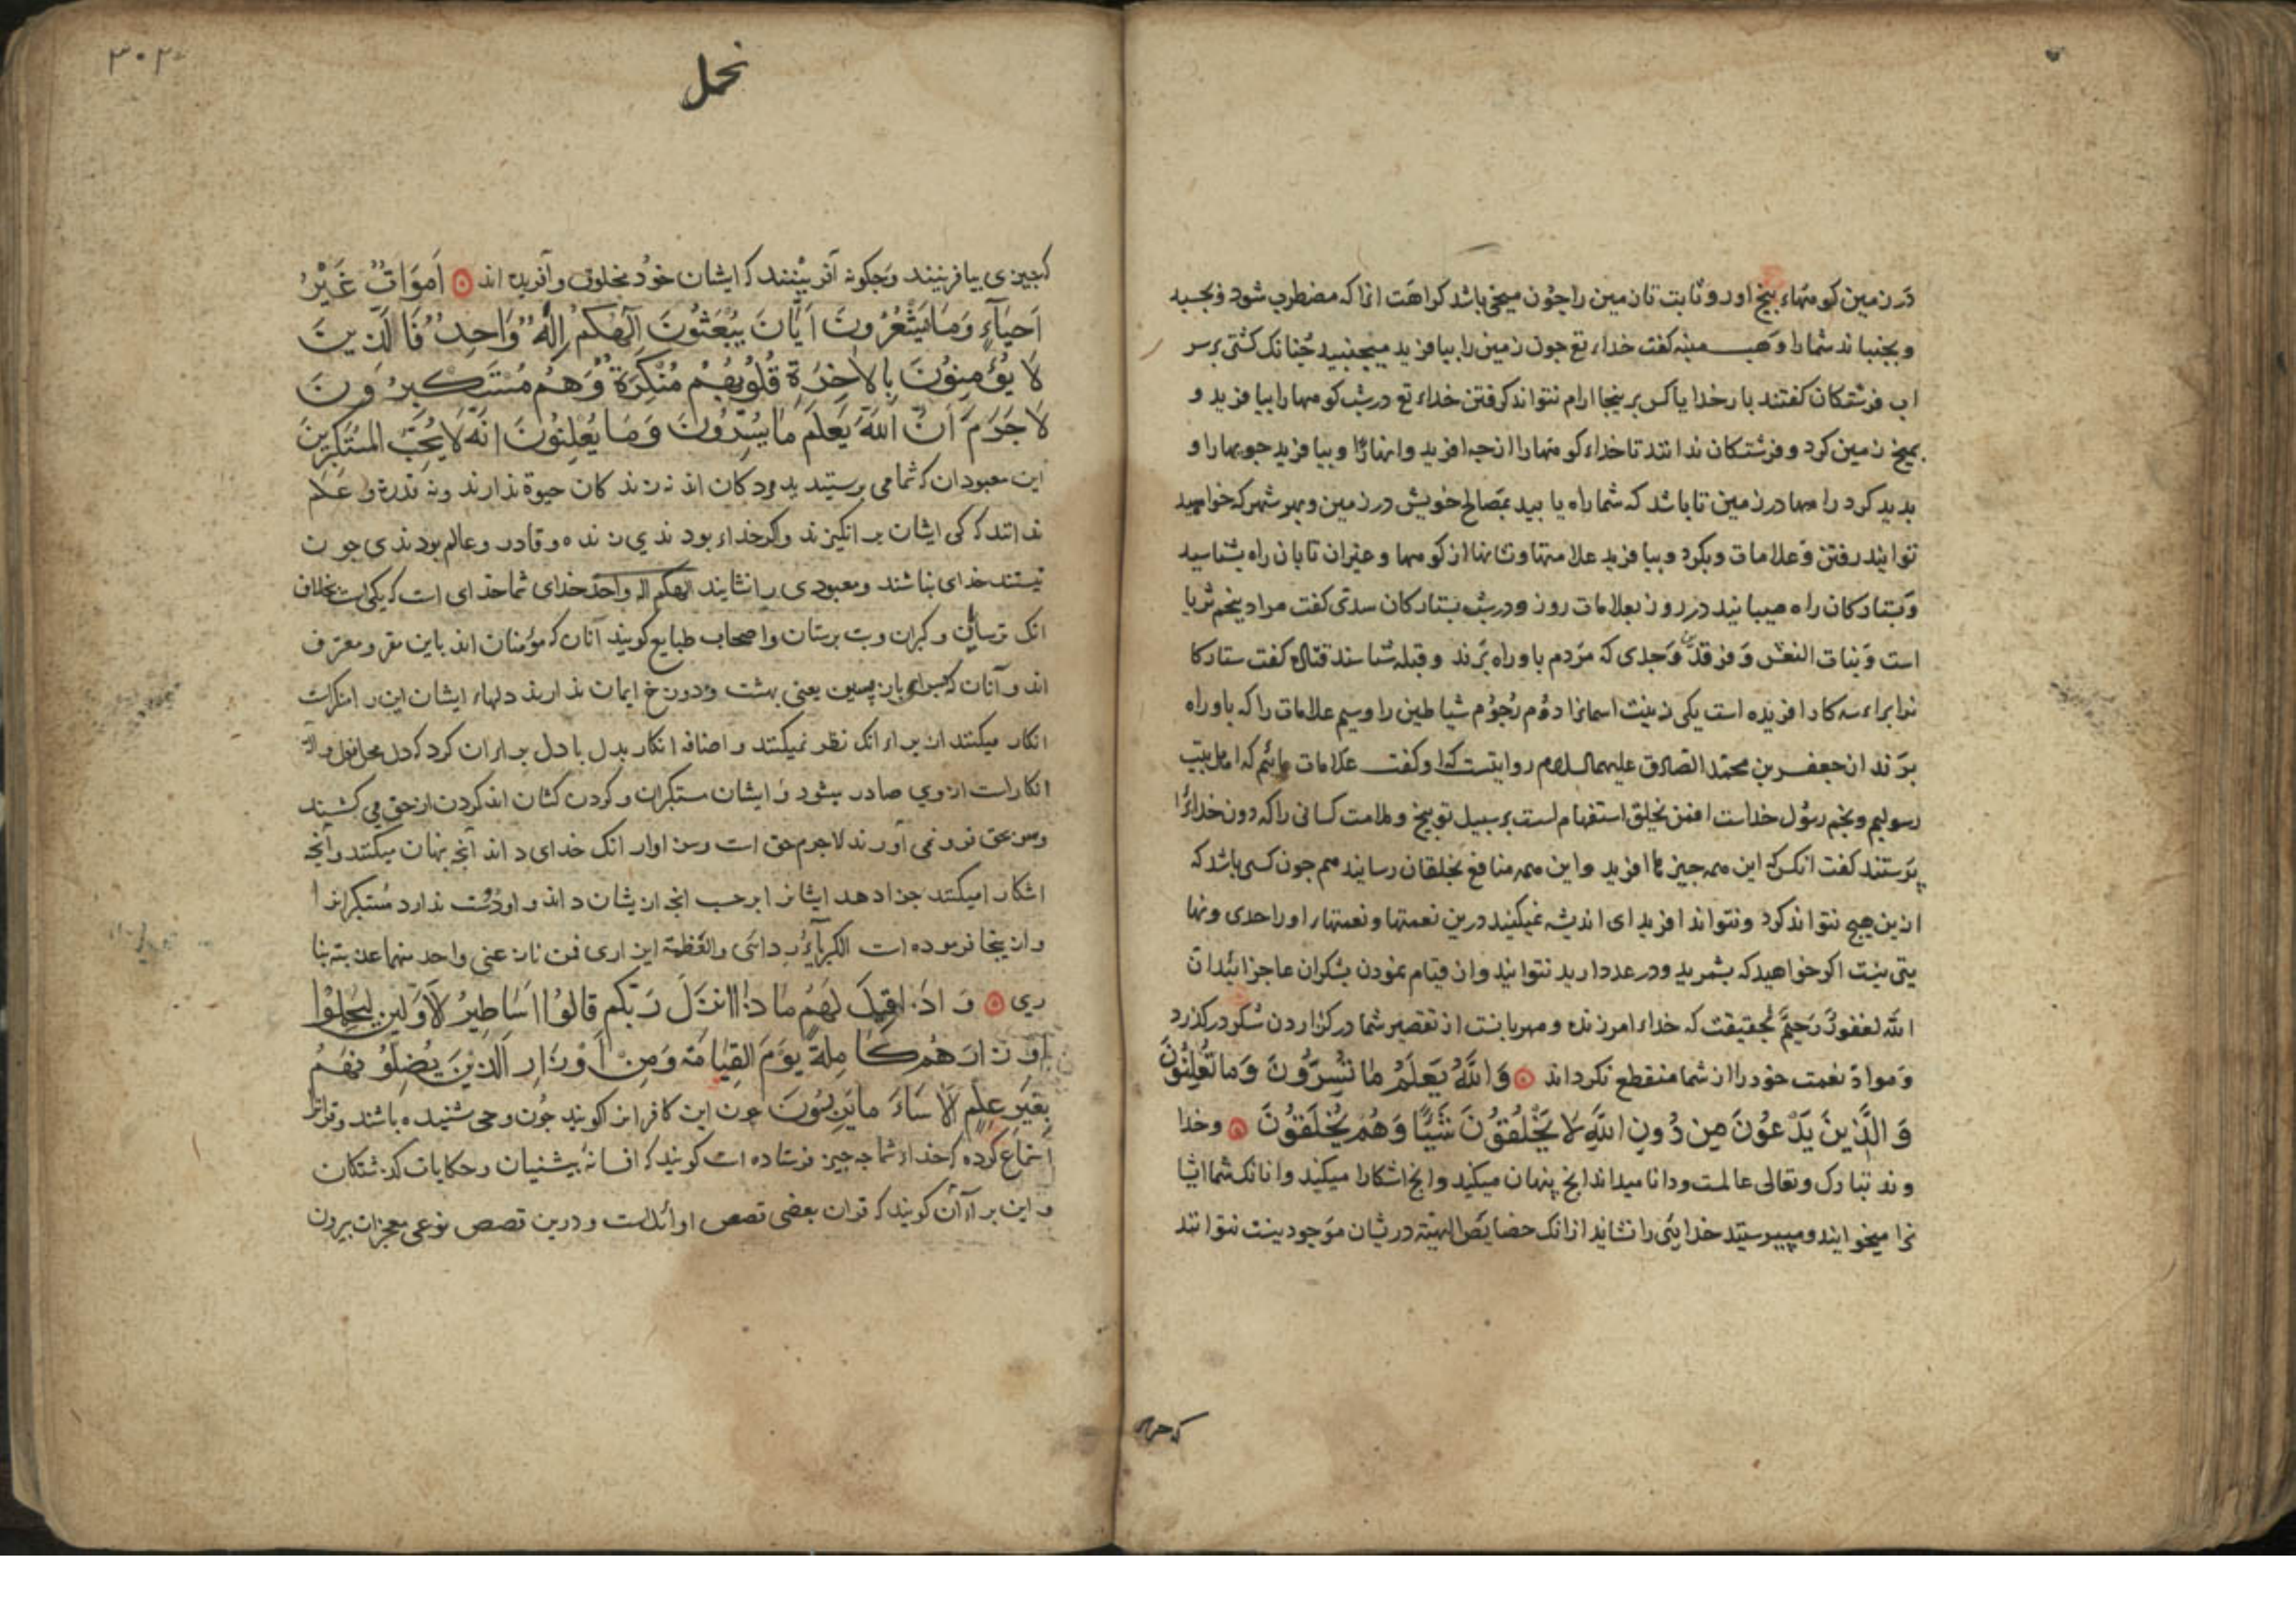 در زمین کوههاء بیخ اور و ثابت تا زمین را چون میخی باشد کراهت انرا که مضطرب شود و بجسبد
و بجنباند شما را وهب منبه کفت خداء تع جون زمین را بیافرید میجنبید جنانک کشتی بر سر
اب فرشتکان کفتند بار خدایا کس برینجا ارام نتواند کرفتن خداء تع در شب کوهها را بیافرید و
بمیخ زمین کرد و فرشتکان ندانند تا خداء کوهها را از جه افرید وانهارًا و بیافرید جویها را و
بدید کرد راهها در زمین تا باشد که شما راه یابید بمصالح خویش در زمین و بهر شهر که خواهید
توانید رفتن وعلامات وبکرد و بیافرید علامتها و نشانها از کوهها و غیران تا بان راه بشناسید
و بستارکان راه مییابید در روز بعلامات روز و در شب بستارکان سدی کفت مراد بنجم ثریا
است و بنات النعش و فرقدین و جدی که مردم باو راه برند و قبله شناسند قتاده کفت ستارکا
نرا براء سه کار افریده است یکی زینت اسمانرا دوم رجوم شیاطین را وسیم علامات را که باو راه
برند از جعفر بن محمد الصادق علیهما السلام روایتست که او کفت علامات ماییم که اهل بیت
رسولیم و نجم رسول خداست افمن یخلق استفهام است بر سبیل توبیخ و ملامت کسانی را که دون خدایرا
پرستند کفت انکس که این همه جیزها افرید و این همه منافع بخلقان رسانید هم جون کسی باشد که
ازین هیج نتواند کرد و نتواند افرید ای اندیشه نمیکنید درین نعمتها و نعمتهاء او را حدی و نها
یتی نیست اکر خواهید که بشمرید و در عدد ارید نتوانید وان قیام نمودن بشکران عاجز ایید ان
الله لغفور رحیم بحقیقت که خداء امرزنده و مهربانست از تقصیر شما در کزاردن شکر درکذرد
و مواد نعمت خود را از شما منقطع نکرداند وَاللّهُ يَعلَمُ ما تُسِرُّونَ وَما تُعلِنُونَ
وَالَّذينَ يَدْعُونَ مِن دُونِ اللّهِ لا يَخْلُقُونَ شَيْئًا وَهُم يُخْلَقُونَ وخدا
وند تبارک وتعالی عالمست ودانا میداند انج پنهان میکنید وانج اشکارا میکنید وانانک شما ایشا
نرا میخوانید و میپرستید خدایی را نشایند ازانک خصایص الهیة دریشان موجود نیست نتوانند
که جیزی
نحل
۳۰۲
که جیزی بیافرینند وجکونه آفرینند که ایشان خود مخلوق و آفریده اند اَموَاتٌ غَيْرُ
اَحيَآءٍ وَمَا يَشْعُرُونَ اَيَّانَ يُبْعَثُونَ اِلٰهُكُمْ اِلٰهٌ وَاحِدٌ فَالَّذينَ
لَا يُؤْمِنُونَ بِالاٰخِرَةِ قُلُوبُهُمْ مُنْكِرَةٌ وَهُم مُسْتَكبِرُونَ
لَا جَرَمَ اَنَّ اللّهَ يَعلَمُ مَا يُسِرُّونَ وَمَا يُعْلِنُونَ اِنَّهُ لَا يُحِبُّ المُسْتَكبِرينَ
این معبودان که شما می پرستید مردکان اند نه زندکان حیوة ندارند ونه قدرة و علم
ندانند که کی ایشان بر انکیزند واکر خداء بودندی زنده وقادر وعالم بودندی جون
نیستند خدای نباشند ومعبودی را نشایند الهکم اله واحد خدای شما خدای است که یکی است بخلاف
انک ترسایان وکبران وبت پرستان واصحاب طبایع کویند آنان که مؤمنان اند باین مقر ومعترف
اند وآنان که بسراء بازپسین یعنی بهشت ودوزخ ایمان ندارند دلهاء ایشان این را منکر است
انکار میکنند از براء انک نظر نمیکنند واضافه انکار بدل با دل براء ان کرد که دل محل
انکار است از وی صادر میشود وایشان متکبران وکردن کشان اند کردن از حق می کشند
وسر بحق فرو نمی آورند لاجرم حق است وسزاوار انک خدای داند آنج پنهان میکنند وآنج
اشکارا میکنند جزا دهد ایشانرا برحسب انج ازیشان داند واو دوست ندارد متکبرانرا
وازینجا فرموده است الکبریآء ردائی والعظمة ازاری فمن نازعنی واحد منهما عذبته بنا
ری وَاِذَا قِيلَ لَهُم مَا ذَا اَنْزَلَ رَبُّكُم قَالُوا اَسَاطِيرُ الاَوَّلينَ لِيَحمِلُوا
اَوزَارَهُم كَامِلَةً يَوْمَ القِيَامَةِ وَمِنْ اَوْزَارِ الَّذينَ يُضِلُّونَهُمْ
بِغَيرِ عِلمٍ اَلَا سَاءَ مَا يَزِرُونَ جون این کافرانرا کویند جون وحی شنیده باشند وقرانرا
استماع کرده که خداء شما جه جیز فرستاده است کویند که افسانه پیشنیان وحکایات کذشتکان
واین براء آن کویند که قران بعضی قصص اوائلست ودرین قصص نوعی معجزات بیرون